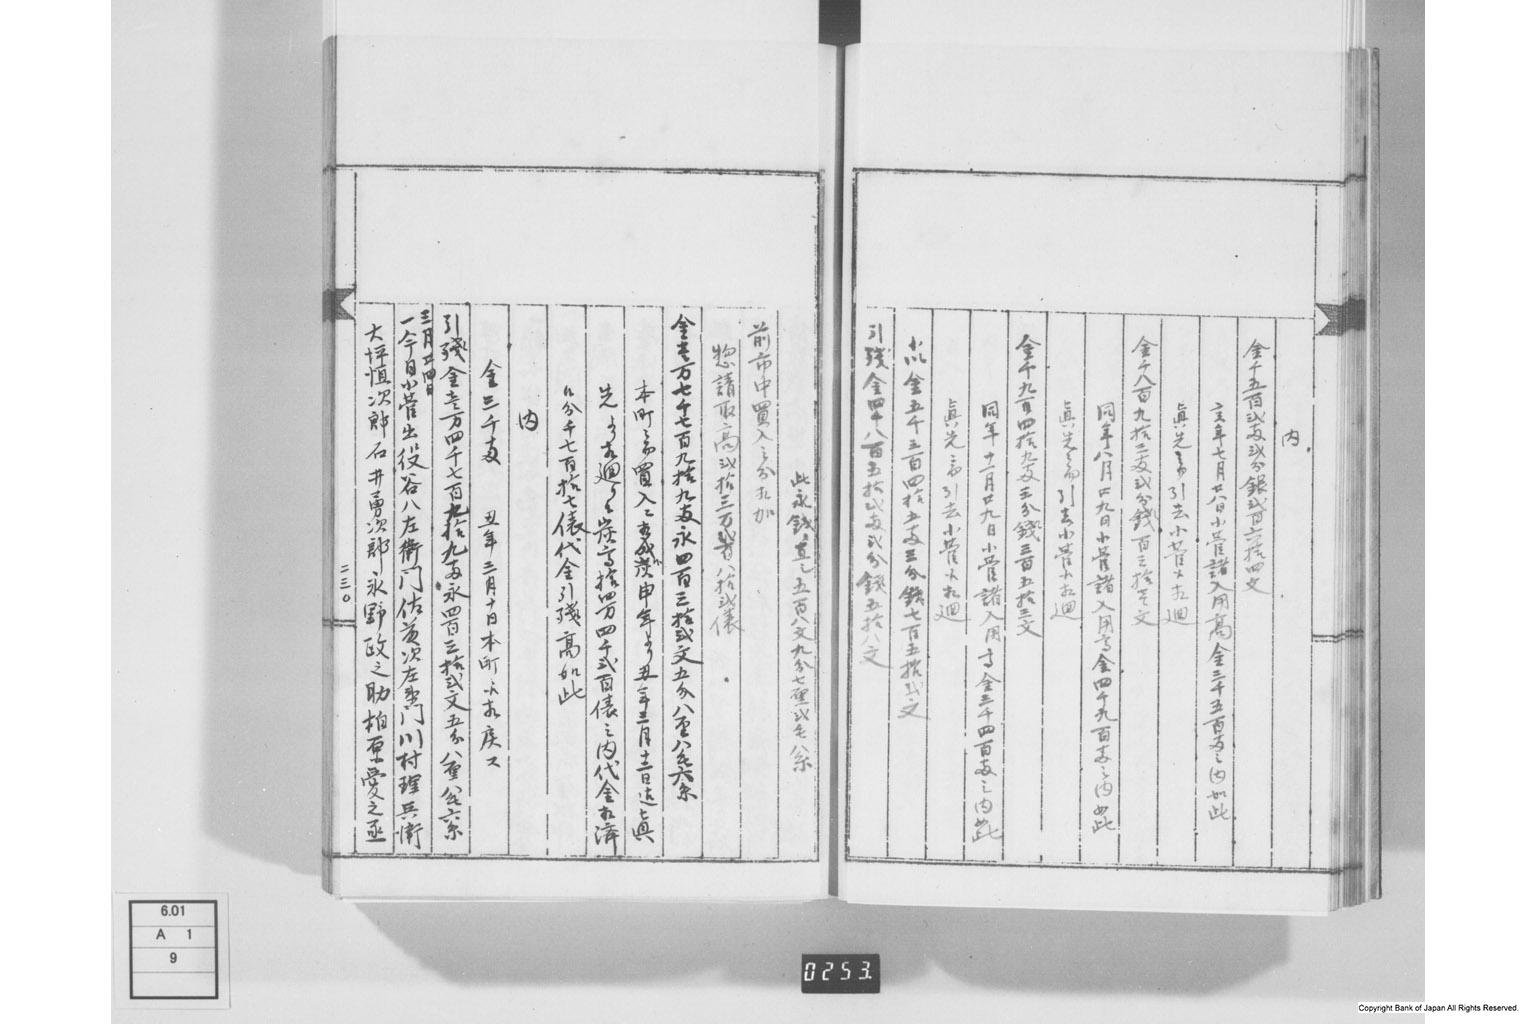 内
金千五百弐両弐分銀弐百六拾四文
子年七月廿八日小菅諸入用高金三千五百両之内如此
真先ゟ引去小菅ゟ相廻
金千八百九拾二両弐分銭百三拾壱文
同年八月廿九日小菅諸入用高金四千九百両之内如此
真先ゟ引去小菅ゟ相廻
金千九百四拾九両三分銭三百五拾三文
同年十一月廿九日小菅諸入用高金三千四百両之内如此
真先ゟ引去小菅ゟ相廻
小以金五千三百四拾五両三分銭七百五拾弐文
引残金四千八百五拾弐両弐分銭五拾八文
此永銭直し五百八文九分七厘弐毛八糸
前市中買入之分相加
惣請取高弐拾三万弐百八拾弐俵
金壱万七千七百九拾九両永四百三拾弐文五分八厘八毛六糸
本町ゟ買入
申年ゟ丑年三月十二日迄真
先ゟ相廻り候炭高拾四万四千弐百俵之内代金相済
候分千七百拾七俵代金引残高如此
内
金三千両 丑年三月十日本町ゟ相戻ス
引残金壱万四千七百九拾九両永四百三拾弐文五分八厘八毛六糸
三月廿四日
一今日小菅出役谷八左衛門佐藤次左衛門川村理兵衛
大坪恒次郎石井勇次郎永野政之助柏原愛之丞
二三〇
6.01
A 1
9
0253.
Copyright Bank of Japan All Rights Reserved.